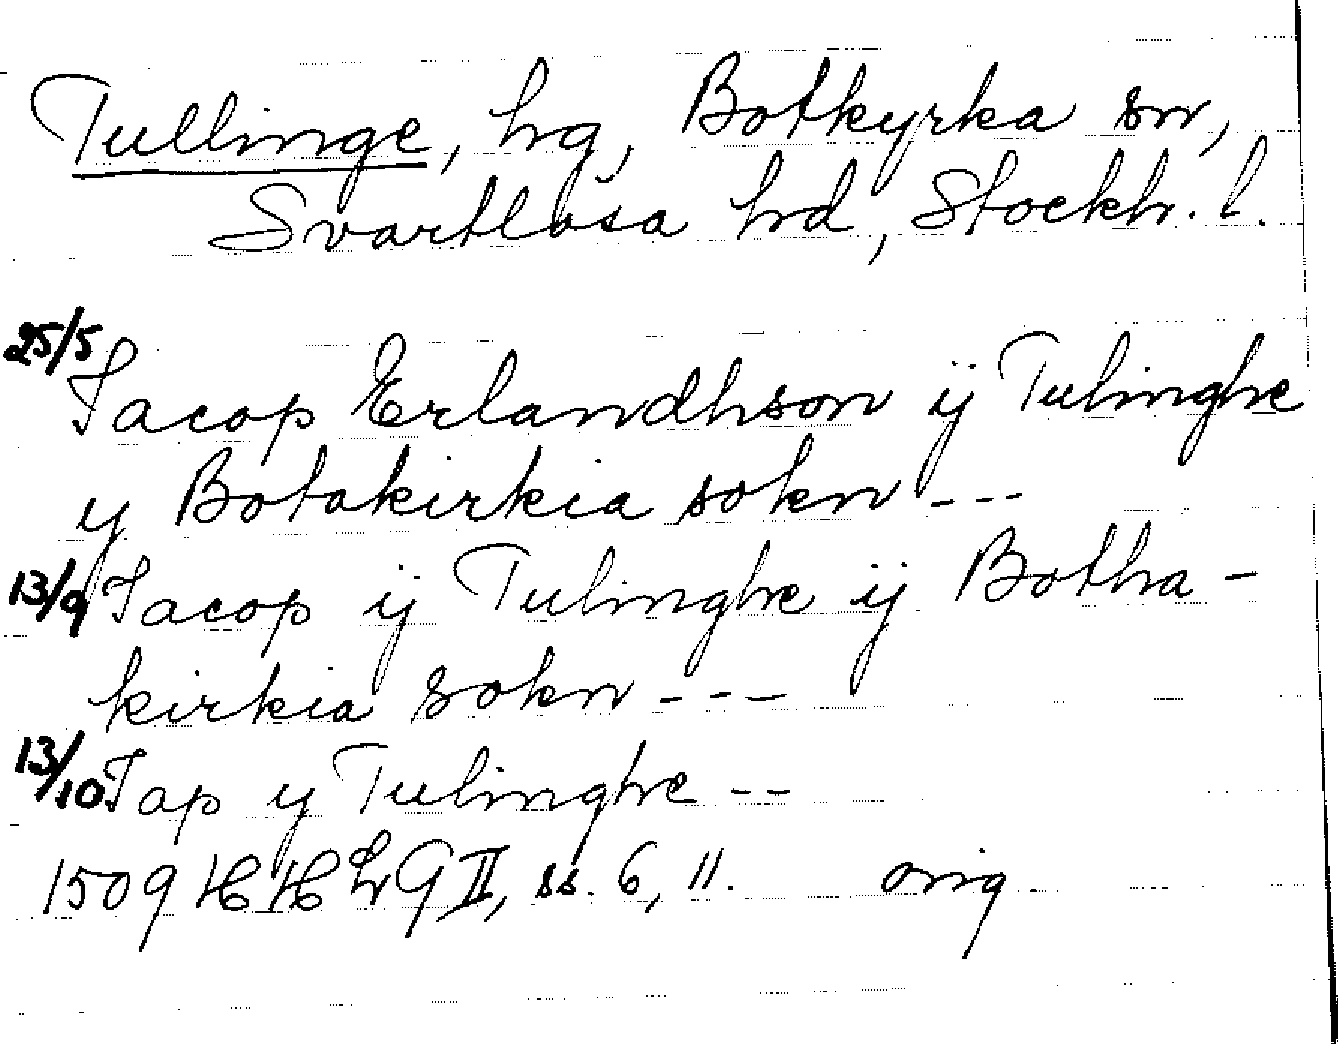 Tullinge, hg, Botkyrka sn,
Svartlösa hd, Stockh. l.
25/5 Jacop Erlandhson ÿ Tulinghe
y Botakirkia sokn ---
13/9 Jacop ÿ Tulinghe ÿ Botha-
kirkia sokn ---
13/10 Jap y Tulinghe --
1509 HH LG II, ss. 6, 11. orig